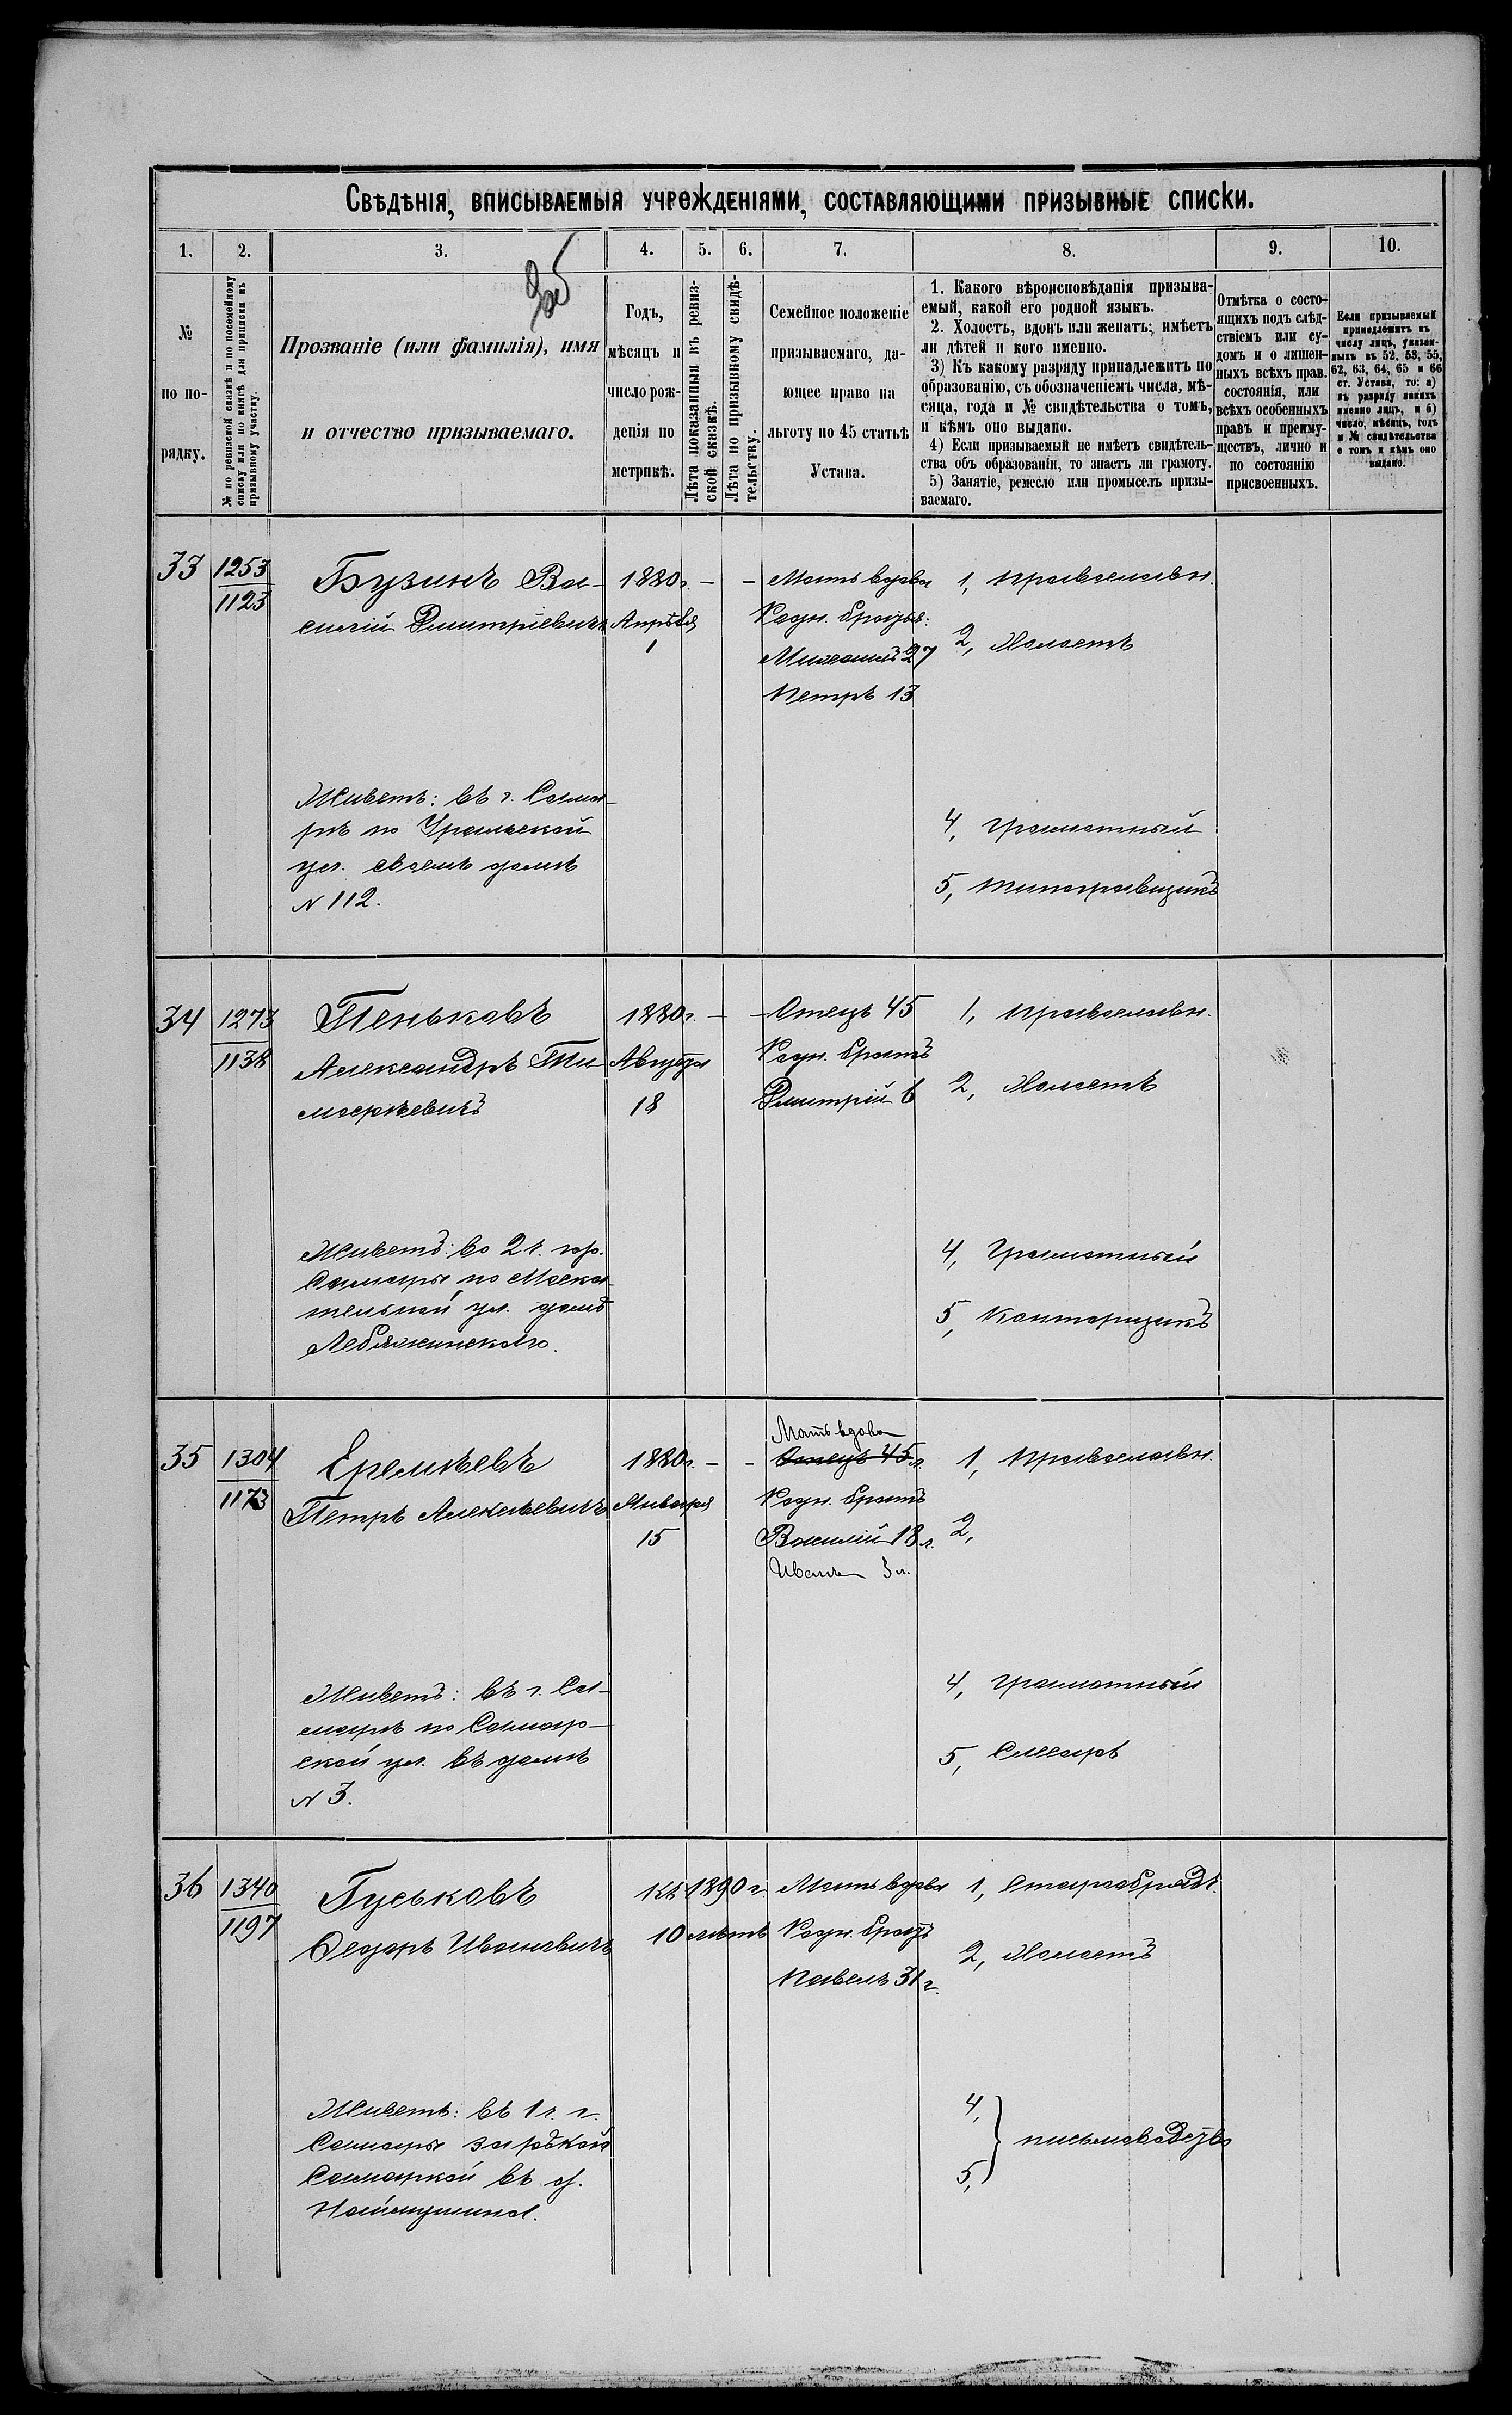 Свѣдѣнія, вписываемыя учрежденіями, составляющими призывные списки.
1. 2. 3. 4. 5. 6. 7. 8. 9. 10.
35
№
по по-
рядку.
№ по ревизской сказкѣ и по посемейному
списку или по книгѣ для приписки къ
призывному участку.
Прозваніе (или фамилія), имя
и отчество призываемаго.
Годъ,
мѣсяцъ и
число рож-
денія по
метрикѣ.
Лѣта показанныя въ ревиз-
ской сказкѣ.
Лѣта по призывному свидѣ-
тельству.
Семейное положеніе
призываемаго, да-
ющее право на
льготу по 45 статьѣ
Устава.
1. Какого вѣроисповѣданія призыва-
емый, какой его родной языкъ.
2. Холостъ, вдовъ или женатъ; имѣетъ
ли дѣтей и кого именно.
3) Къ какому разряду принадлежитъ по
образованію, съ обозначеніемъ числа, мѣ-
сяца, года и № свидѣтельства о томъ,
и кѣмъ оно выдано.
4) Если призываемый не имѣетъ свидѣтель-
ства объ образованіи, то знаетъ ли грамоту.
5) Занятіе, ремесло или промыселъ призы-
ваемаго.
Отмѣтка о состо-
ящихъ подъ слѣд-
ствіемъ или су-
домъ и о лишен-
ныхъ всѣхъ прав.
состоянія, или
всѣхъ особенныхъ
правъ и преиму-
ществъ, лично и
по состоянію
присвоенныхъ.
Если призываемый
принадлежитъ къ
числу лицъ, указан-
ныхъ въ 52, 53, 55,
62, 63, 64, 65 и 66
ст. Устава, то: а)
къ разряду какихъ
именно лицъ, и б)
число, мѣсяцъ, годъ
и № свидѣтельства
о томъ и кѣмъ оно
выдано.
33 1253 Бузинъ Ва- 1880г. – – Мать вдова 1, православн.
1123 силій Дмитріевичъ Апрѣля Родн. братья:
1 Михаилъ 27 2, Холостъ
Петръ 13
Живетъ: въ г. Сама-
рѣ по Уральской 4, грамотный
ул. своемъ домѣ
N 112. 5, типографщикъ
34 1273 Пеньковъ 1880г. – – Отецъ 45 1, православн.
1138 Александръ Ти- Августа Родн. братъ
мофѣевичъ 18 Дмитрій 6 2, Холостъ
Живетъ: во 2 ч. гор. 4, Грамотный
Самары по Моска-
тельной ул. домъ 5, Конторщикъ
Лебяжинскаго.
Мать вдова
35 1304 Еремѣевъ 1880г. – – Отецъ 45л. 1, православн.
1173 Петръ Алексѣевичъ Января Родн. братъ
15 Василій 18 л. 2,
Иванъ 3 л.
Живетъ: въ г. Са- 4, грамотный
марѣ по Самар-
ской ул. въ домѣ 5, Слесарь
N 3.
36 1340 Гуськовъ Къ 1890 г. Мать вдова 1, Старообрядъ.
1197 Ѳедоръ Ивановичъ 10 лѣтъ Родн. братъ
Павелъ 31 г. 2, Холостъ
Живетъ: въ 1 ч. г. 4,
Самары за рѣкой письмоводство
Самаркой въ д. 5,
Наймушина.